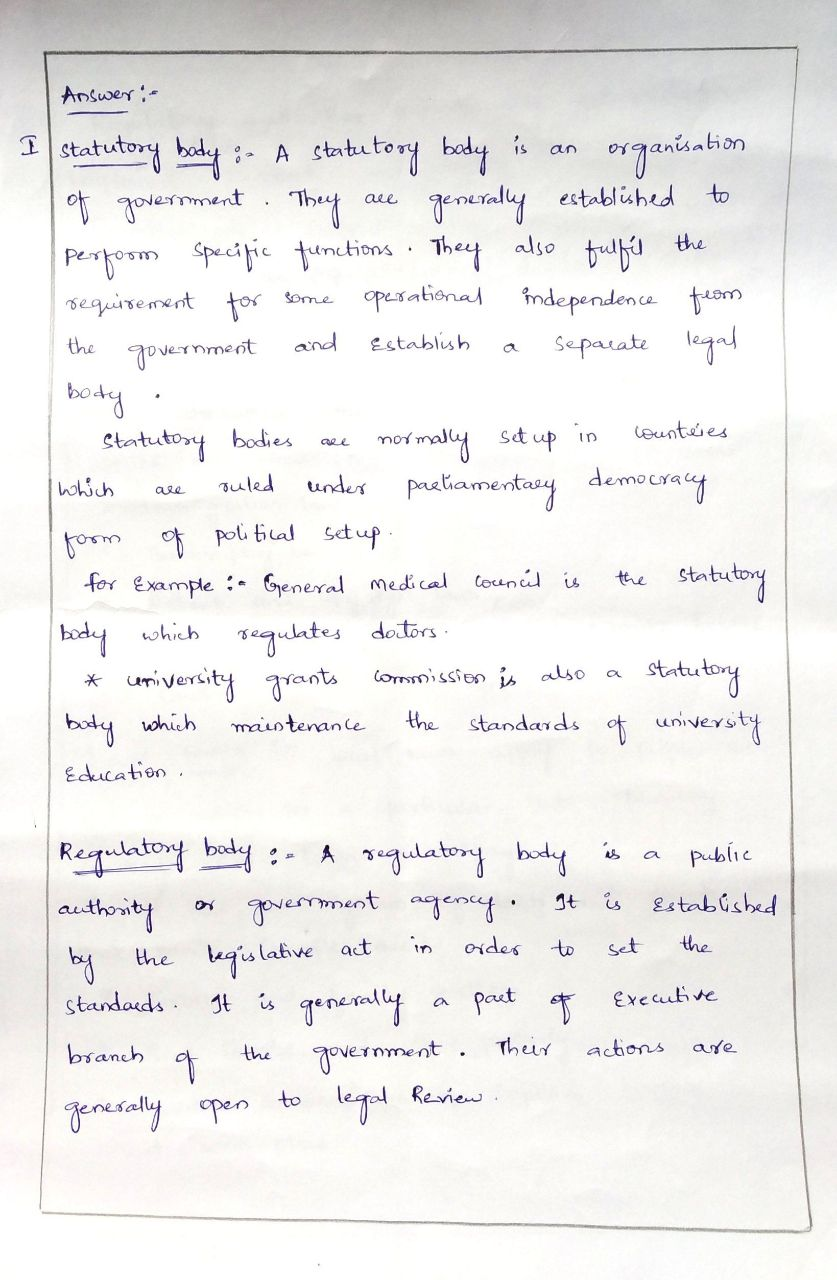 Answer :-
I Statutory body :- A statutory body is an organisation
of government . They are generally established to
perform specific functions . They also fulfil the
requirement for some operational independence from
the government and Establish a separate legal
body .
Statutory bodies are normally set up in countries
which are ruled under parliamentary democracy
form of political setup .
for Example :- General medical council is the statutory
body which regulates doctors .
* university grants commission is also a statutory
body which maintenance the standards of university
Education .
Regulatory body :- A regulatory body is a public
authority or government agency . It is Established
by the legislative act in order to set the
standards . It is generally a part of Executive
branch of the government . Their actions are
generally open to legal Review .